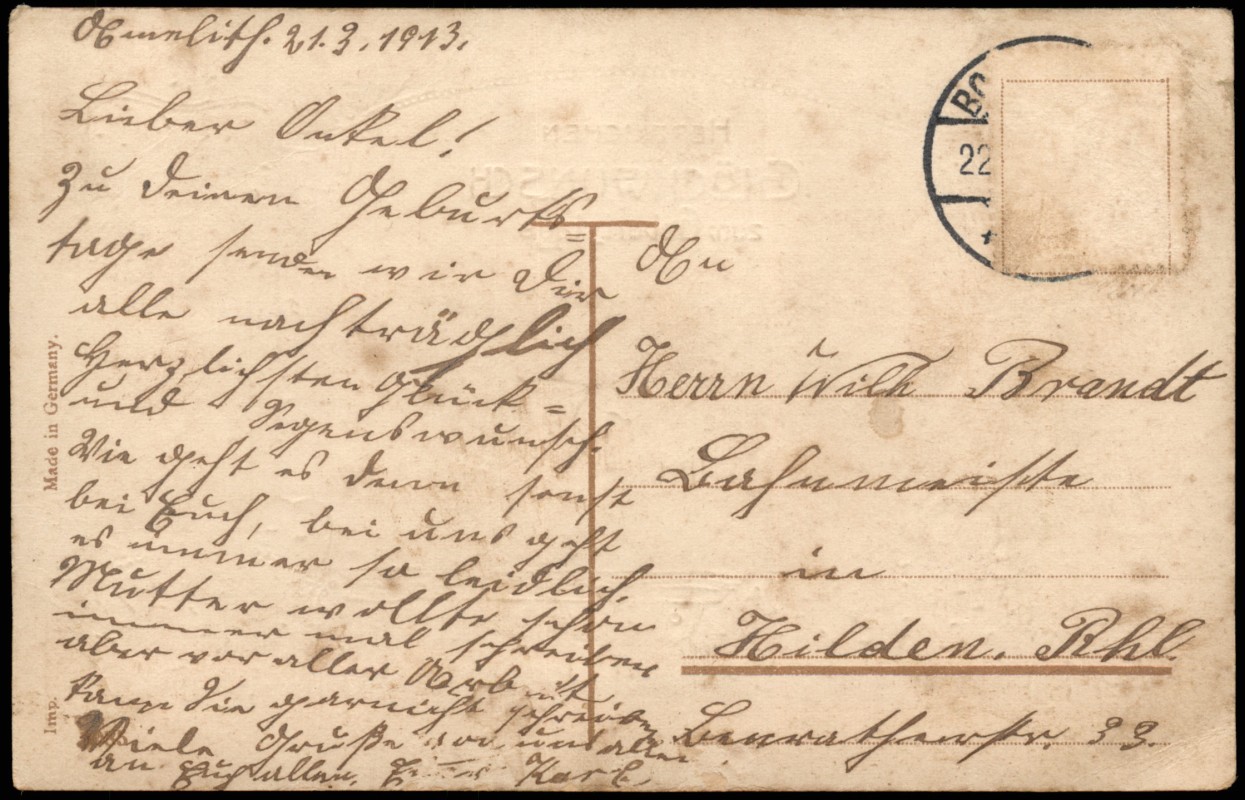 Amelith. 21.3.1913.
Lieber Onkel!
Zu Deinem Geburts=
tage senden wir Dir
alle nachträglich
Herzlichsten Glück=
und Segenswunsch.
Wie geht es denn sonst
bei Euch, bei uns geht
es immer so leidlich.
Mutter wollte schon
immer mal schreiben
aber vor aller Arbeit
kann Sie garnicht schreiben
Viele Grüße von uns allen
an Euch allen. Karl.
An
Herrn Wilh Brandt
Bahnmeister
in
Hilden. Rhl.
Benratherstr. 33.
BO
22
Made in Germany.
Imp.
HERZLICHEN
GLÜCKWUNSCH